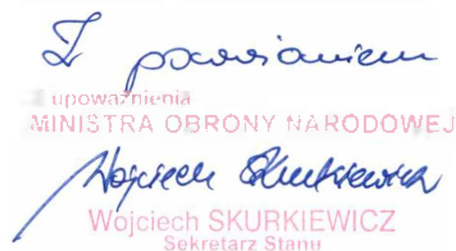 Z poważaniem
upoważnienia
MINISTRA OBRONY NARODOWEJ
Wojciech Skurkiewicz
Wojciech SKURKIEWICZ
Sekretarz Stanu